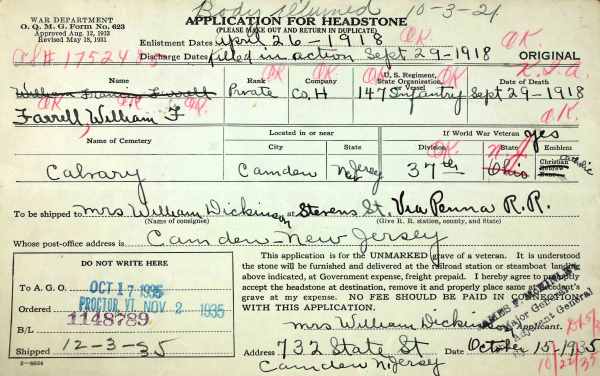 Body returned 10-3-21
WAR DEPARTMENT
O. Q. M. G. Form No. 623
Approved Aug. 12, 1913
Revised May 18, 1931
APPLICATION FOR HEADSTONE
(PLEASE MAKE OUT AND RETURN IN DUPLICATE)
Enlistment Dates April 26 - 1918 OK
Discharge Dates Killed in action Sept 29 - 1918 OK ORIGINAL
Name Rank Company U. S. Regiment, State Organization, Vessel Date of Death
K.I.A.
William Francis Farrell Private Co, H 147 Infantry Sept 29 - 1918
OK. OK. OK.
Farrell, William F
Name of Cemetery Located in or near If World War Veteran yes
City State Division State Emblem
Calvary Camden New Jersey 37th Ohio N.J. Christian Hebrew None Catholic
To be shipped to Mrs William Dickinson at Stevens St, Via Penna R.R.
(Name of consignee) (Give R. R. station, county, and State)
Whose post-office address is Camden - New Jersey
DO NOT WRITE HERE
To A. G. O. OCT 17 1935
Ordered PROCTOR VT. NOV 2 1935
B/L 1148789
Shipped 12-3-35
This application is for the UNMARKED grave of a veteran. It is understood
the stone will be furnished and delivered at the railroad station or steamboat landing
above indicated, at Government expense, freight prepaid. I hereby agree to promptly
accept the headstone at destination, remove it and properly place same at decedent's
grave at my expense. NO FEE SHOULD BE PAID IN CONNECTION
WITH THIS APPLICATION.
Major General
Adjutant General
Mrs William Dickinson Applicant.
Address 732 State St Date October 15, 1935
Camden N. Jersey 10/22/35